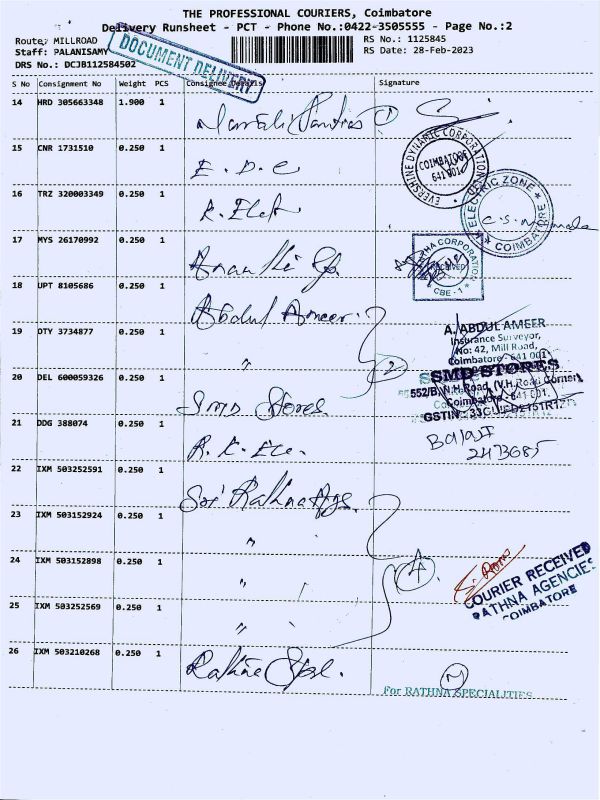 THE PROFESSIONAL COURIERS, Coimbatore
Delivery Runsheet - PCT - Phone No.:0422-3505555 - Page No.:2
Route: MILLROAD
RS No.: 1125845
Staff: PALANISAMY
RS Date: 28-Feb-2023
DRS No.: DCJB112584502
DOCUMENT DELIVERY
S No Consignment No Weight PCS Consignee Details Signature
14 HRD 305663348 1.900 1
15 CNR 1731510 0.250 1 E.D.C
EVERSHINE DYNAMIC CORPORATION
COIMBATORE
641 001
16 TRZ 320003349 0.250 1 R. Elet
ELECTRIC ZONE
COIMBATORE
17 MYS 26170992 0.250 1
CORPORATION
RECEIVED
CBE - 1
18 UPT 8105686 0.250 1 Abdul Ameer.
19 DTY 3734877 0.250 1 "
2
A. ABDUL AMEER
Insurance Surveyor,
No: 42, Mill Road,
Coimbatore - 641 001
20 DEL 600059326 0.250 1 SMD Stores
SMD STORES
552/B, N.H.Road, (V.H.Road Corner)
Coimbatore - 641 001.
21 DDG 388074 0.250 1
Balaji
22 IXM 503252591 0.250 1 Sri Rathna Ags.
23 IXM 503152924 0.250 1 "
24 IXM 503152898 0.250 1 "
4
COURIER RECEIVED
RATHNA AGENCIES
COIMBATORE
25 IXM 503252569 0.250 1 "
26 IXM 503210268 0.250 1 Rathne Spl.
For RATHNA SPECIALITIES